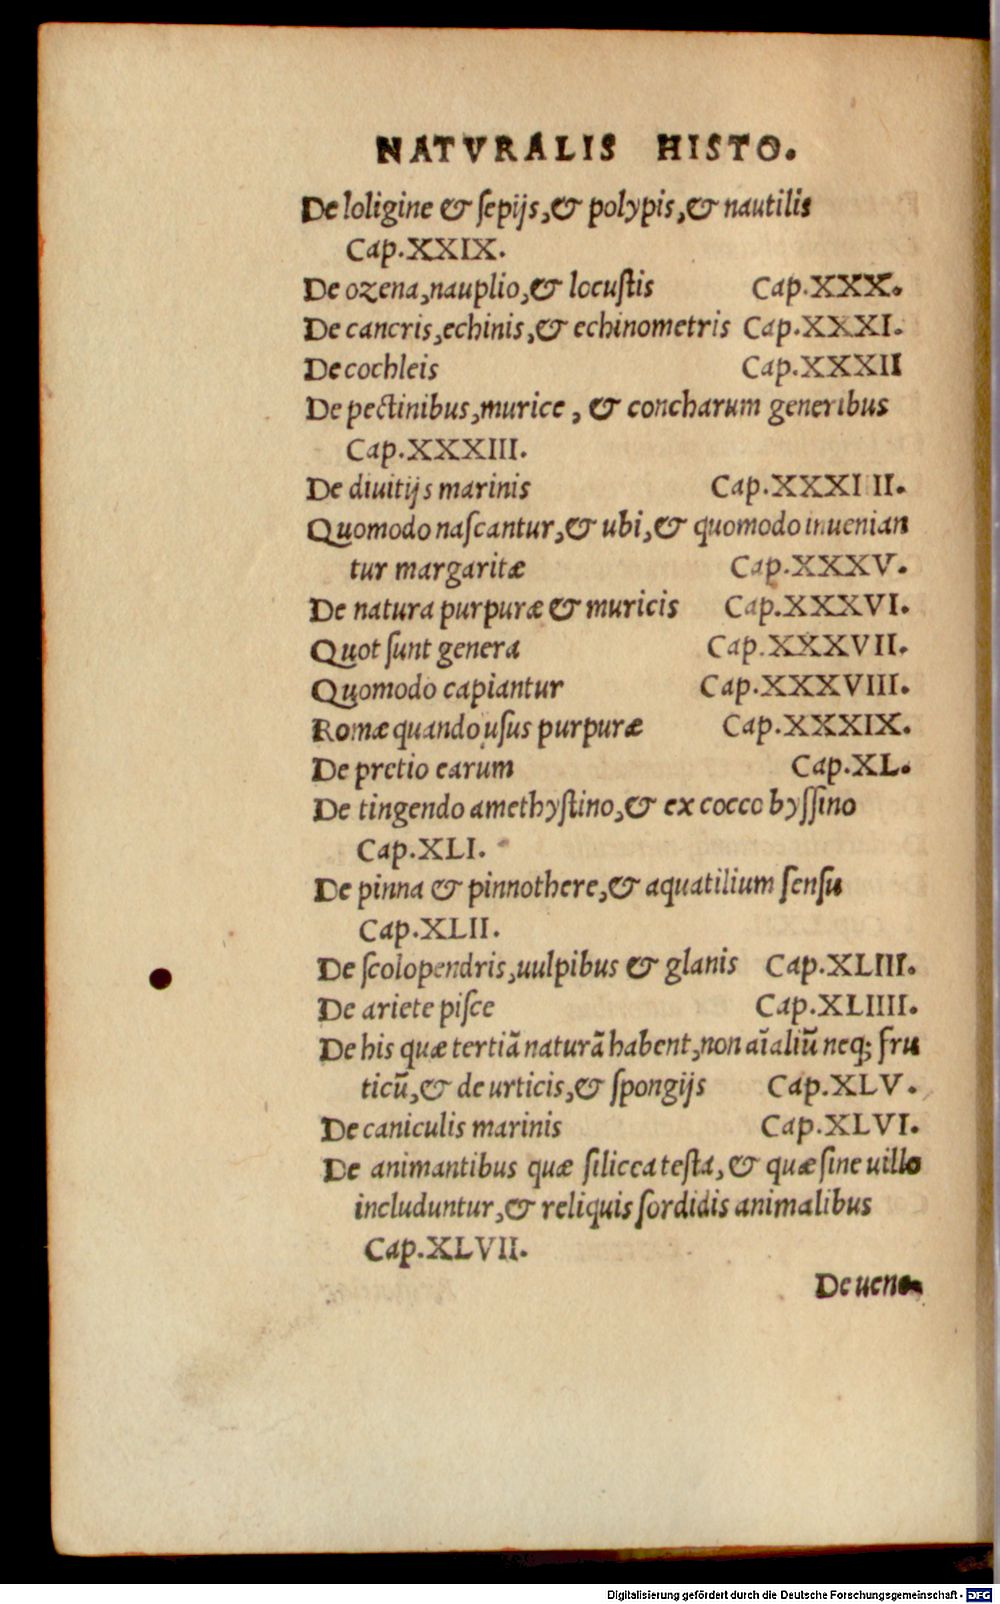 NATVRALIS HISTO.
De loligine & ſepijs,& polypis,& nautilis
Cap.XXIX.
De ozena,nauplio,& locuſtis Cap.XXX.
De cancris,echinis,& echinometris Cap.XXXI.
De cochleis Cap.XXXII
De pectinibus,murice , & concharum generibus
Cap.XXXIII.
De diuitijs marinis Cap.XXXIIII.
Quomodo naſcantur,& ubi,& quomodo inuenian
tur margaritæ Cap.XXXV.
De natura purpuræ & muricis Cap.XXXVI.
Quot ſunt genera Cap.XXXVII.
Quomodo capiantur Cap.XXXVIII.
Romæ quando uſus purpuræ Cap.XXXIX.
De pretio earum Cap.XL.
De tingendo amethyſtino,& ex cocco byſſino
Cap.XLI.
De pinna & pinnothere,& aquatilium ſenſu
Cap.XLII.
De ſcolopendris,uulpibus & glanis Cap.XLIII.
De ariete piſce Cap.XLIIII.
De his quæ tertiã naturã habent,non aĩaliũ neq; fru
ticũ,& de urticis,& ſpongijs Cap.XLV.
De caniculis marinis Cap.XLVI.
De animantibus quæ ſiliccateſta,& quæ ſine uillo
includuntur,& reliquis ſordidis animalibus
Cap.XLVII.
De uene-
Digitalisierung gefördert durch die Deutsche Forschungsgemeinschaft - DFG